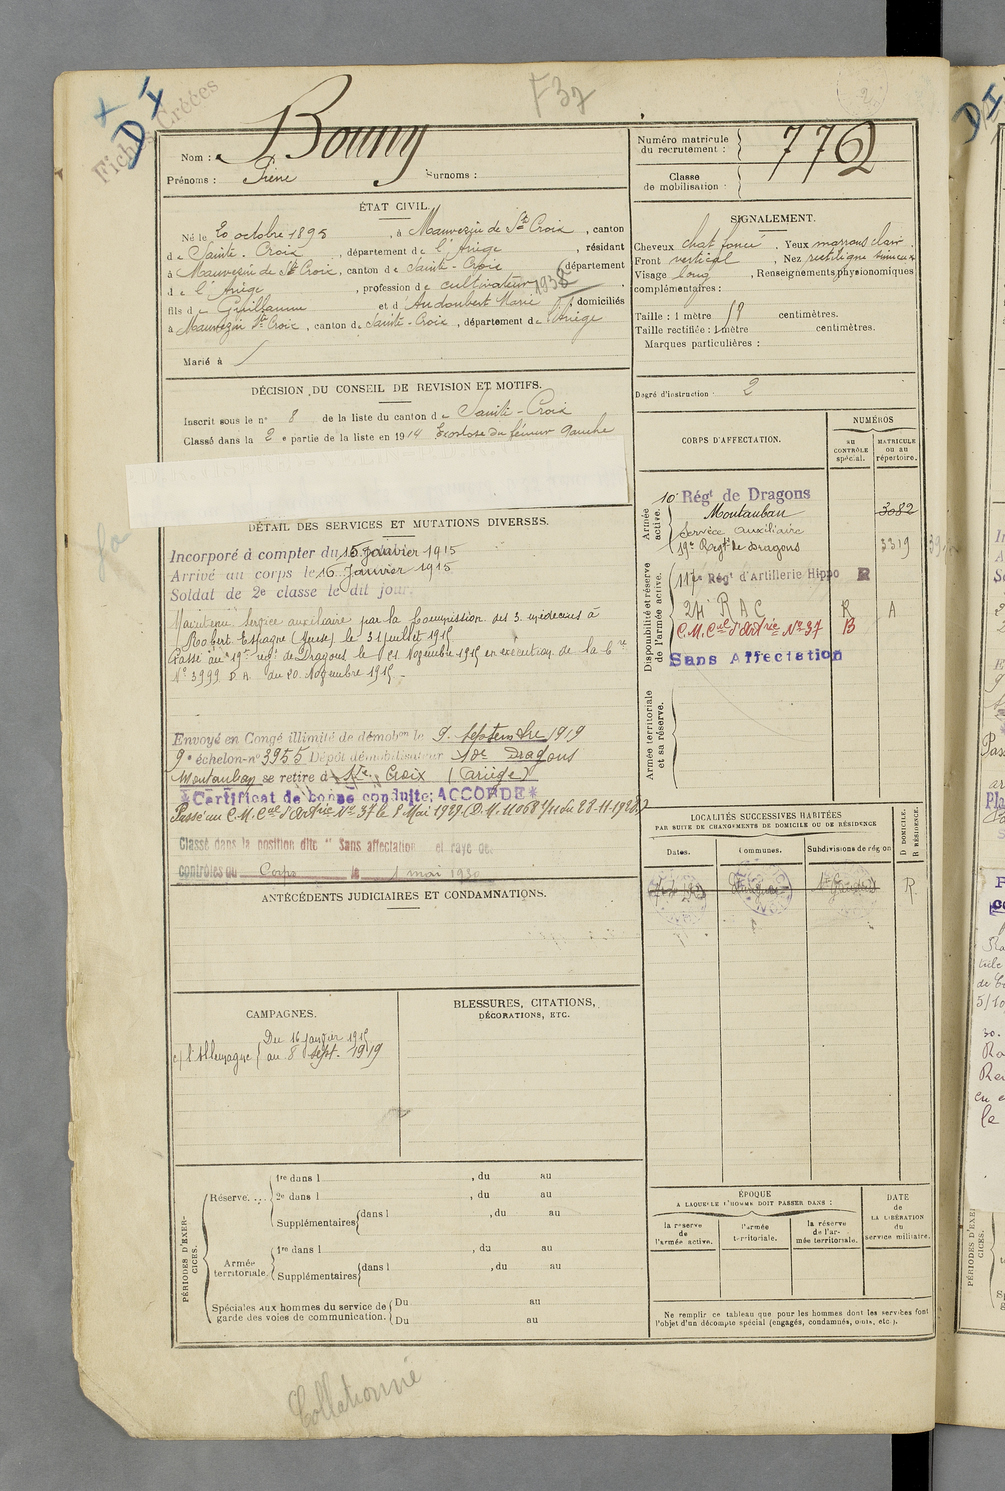 F37
Fiches Créées
D I
Nom : Bouny
Prénoms : Pierre
Surnoms :
Numéro matricule
du recrutement :
772
Classe
de mobilisation :
ÉTAT CIVIL.
Né le 20 octobre 1895, à Mauvezin de Ste Croix, canton
de Sainte-Croix, département de l'Ariège, résidant
à Mauvezin de Ste Croix, canton de Sainte-Croix, département
de l'Ariège, profession de cultivateur
1938
fils de Guillaume et d' Audoubert Marie, domiciliés
à Mauvezin Ste Croix, canton de Sainte-Croix, département de l'Ariège
Marié à
SIGNALEMENT.
Cheveux chat. foncé. Yeux marrons clair.
Front vertical, Nez rectiligne sinueux
Visage long, Renseignements physionomiques
complémentaires :
Taille : 1 mètre centimètres.
Taille rectifiée : 1 mètre centimètres.
Marques particulières :
Degré d'instruction : 2
DÉCISION DU CONSEIL DE REVISION ET MOTIFS.
Inscrit sous le n° 8 de la liste du canton de Sainte-Croix
Classé dans la 2e partie de la liste en 1914 Exostose du fémur gauche
DÉTAIL DES SERVICES ET MUTATIONS DIVERSES.
Incorporé à compter du 15 janvier 1915
Arrivé au corps le 16 Janvier 1915
Soldat de 2e classe le dit jour.
Maintenu Service auxiliaire par la Commission des 3 médecins à
Robert Espagne (Meuse) le 31 juillet 1915
Passé au 19e régt de Dragons le 21 Novembre 1915 en exécution de la C
N° 3999 D.A. du 20 Novembre 1915.
Envoyé en Congé illimité de démobon le 9 Septembre 1919
9e échelon n° 3955 Dépôt démobilisateur 10e Dragons
Montauban se retire à Ste Croix (Ariège)
*Certificat de bonne conduite: ACCORDE*
Passé au C.M. Cal d'Artrie No 37 le 1 Mai 1929. (D.M. 11068 1/11 du 28-11-1928.)
Classé dans la position dite "Sans affectation" et rayé des
contrôles du Corps le 1 mai 1930
CORPS D'AFFECTATION.
NUMÉROS
AU
CONTRÔLE
spécial.
MATRICULE
ou au
répertoire.
Armée
active.
10e Régt de Dragons
Montauban
3082
Service auxiliaire
19e Régt de Dragons
3319
Disponibilité et réserve
de l'armée active.
117e Régt d'Artillerie Hippo R
24e R A C R A
C.M. Cal d'Artrie No 37 B
Sans Affectation
Armée territoriale
et sa réserve.
ANTÉCÉDENTS JUDICIAIRES ET CONDAMNATIONS.
LOCALITÉS SUCCESSIVES HABITÉES
PAR SUITE DE CHANGEMENTS DE DOMICILE OU DE RÉSIDENCE
D DOMICILE.
R RÉSIDENCE.
Dates.
Communes.
Subdivisions de région
R
CAMPAGNES.
c/ l'Allemagne
Du 16 janvier 1915
au 8 Sept. 1919
BLESSURES, CITATIONS,
DÉCORATIONS, ETC.
PÉRIODES D'EXERCICES.
Réserve....
1re dans l , du au
2e dans l , du au
Supplémentaires dans l , du au
Armée
territoriale.
1re dans l , du au
Supplémentaires dans l , du au
Spéciales aux hommes du service de
garde des voies de communication.
Du au
Du au
ÉPOQUE
A LAQUELLE L'HOMME DOIT PASSER DANS :
la réserve
de
l'armée active.
l'armée
territoriale.
la réserve
de l'ar-
mée territoriale.
DATE
de
LA LIBÉRATION
du
service militaire.
Ne remplir ce tableau que pour les hommes dont les services font
l'objet d'un décompte spécial (engagés, condamnés, omis, etc.).
Collationné